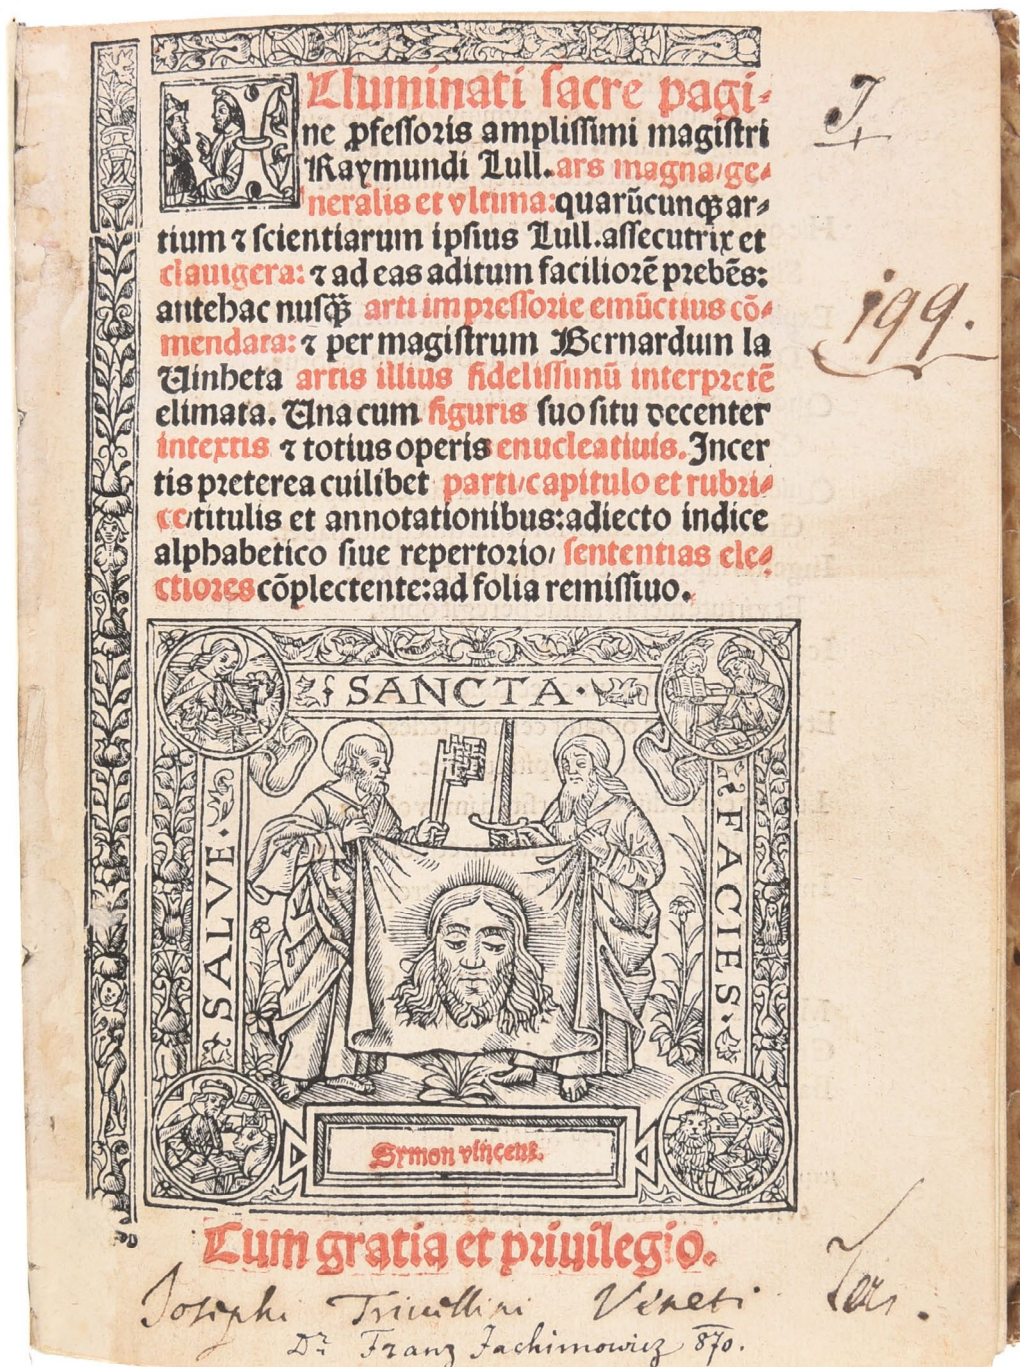 Illuminati sacre pagi-
ne ꝓfessoris amplissimi magistri
Raymundi Lull. ars magna/ge-
neralis et vltima: quarūcunqꝫ ar-
tium ⁊ scientiarum ipsius Lull. assecutrix et
clauigera: ⁊ ad eas aditum faciliorē prebēs:
antehac nusq̄ꝫ arti impressorie emūctius cō-
mendata: ⁊ per magistrum Bernardum la
Uinheta artis illius fidelissimū interpretē
elimata. Una cum figuris suo situ decenter
intextis ⁊ totius operis enucleatiuis. Incer
tis preterea cuilibet parti/capitulo et rubri-
ce/titulis et annotationibus: adiecto indice
alphabetico siue repertorio/ sententias ele-
ctiores cōplectente: ad folia remissiuo.
SALVE · SANCTA · FACIES ·
Symon vincent.
Cum gratia et priuilegio.
I
199.
Josephi Trivellini Veneti
Dr Franz Jachimowicz 870.